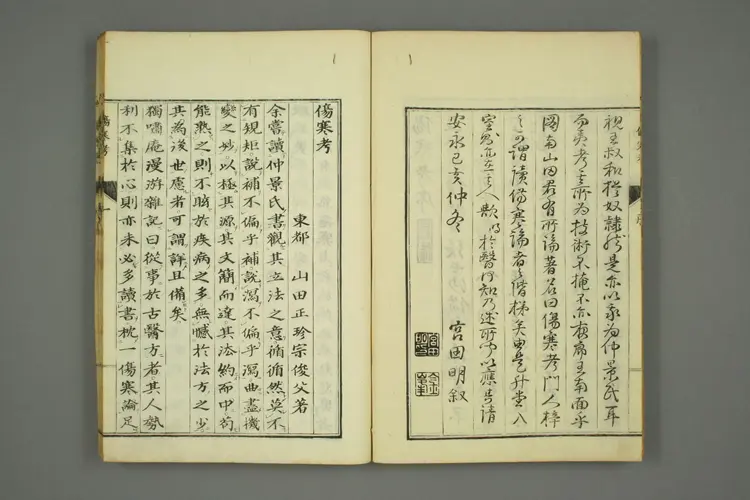 視王叔和猶奴隸然是亦以我為仲景氏耳
而責考之所為技術不掩不亦面乎
圖南山田君有所論著名曰傷寒考門人梓
之可謂讀傷寒論者之階梯矣由是升堂入
室則亦之人歟於醫行知乃述所以應其請
安永己亥仲冬 宮田明叙
傷寒考
東都 山田正珍宗俊父著
余嘗讀仲景氏書觀其立法之意循循然莫不
有規矩說補不偏乎補說瀉不偏乎瀉曲盡機
變之妙以極其源其文簡而達其法約而中苟
能熟之則不眩於疾病之多無憾於法方之少
其為後世慮者可謂詳且備矣
獨嘯庵漫游雜記曰從事於古醫方者其人勢
利不集於心則亦未必多讀書枕一傷寒論足
傷寒考
一